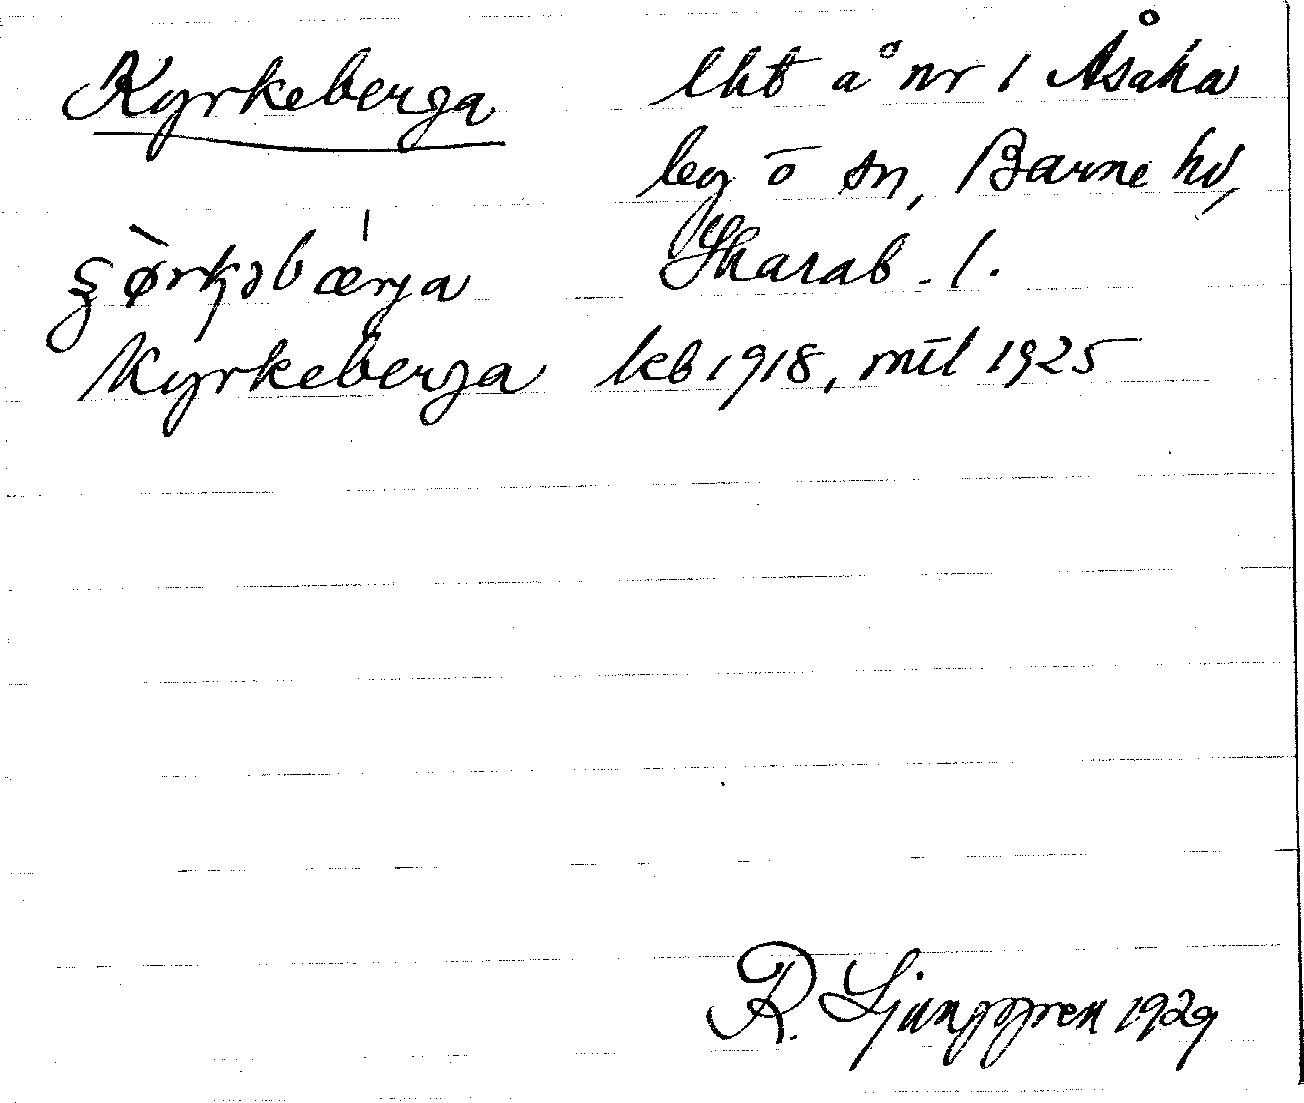 Kyrkeberga lht å nr 1 Åsaka
leg ō sn, Barne hd,
Skarab. l.
Kyrkeberga kb 1918, mtl 1925
R. Ljunggren 1929